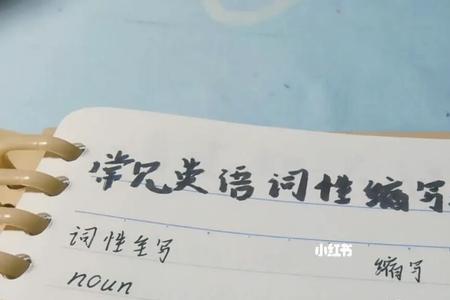 常见英语词性缩写
词性全写 缩写
小红书
noun